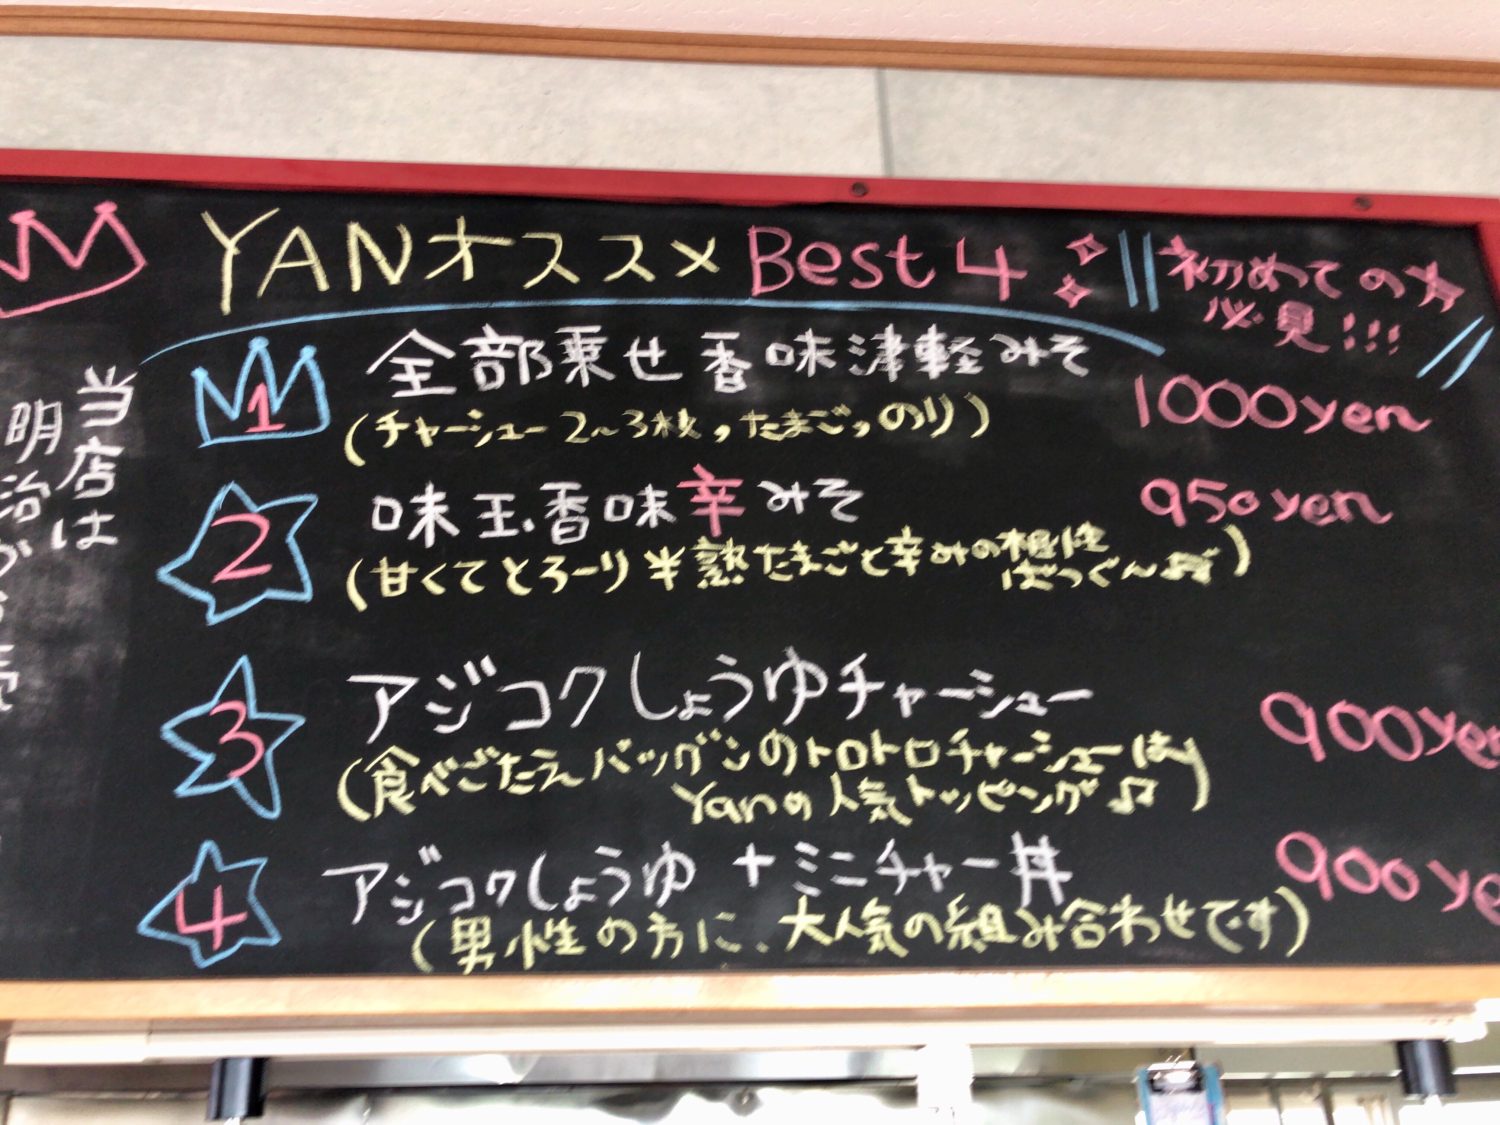 YANオススメ Best 4
初めての方
必見!!!
1 全部乗せ香味津軽みそ 1000yen
(チャーシュー2~3枚,たまご,のり)
2 味玉香味辛みそ 950yen
(甘くてとろーり半熟たまごと辛みの相性
ばつぐん♫)
3 アジコクしょうゆチャーシュー 900yen
(食べごたえバッグンのトロトロチャーシューは
Yanの人気トッピング♫)
4 アジコクしょうゆ+ミニチャー丼 900ye
(男性の方に、大人気の組み合わせです)
当店は
明治